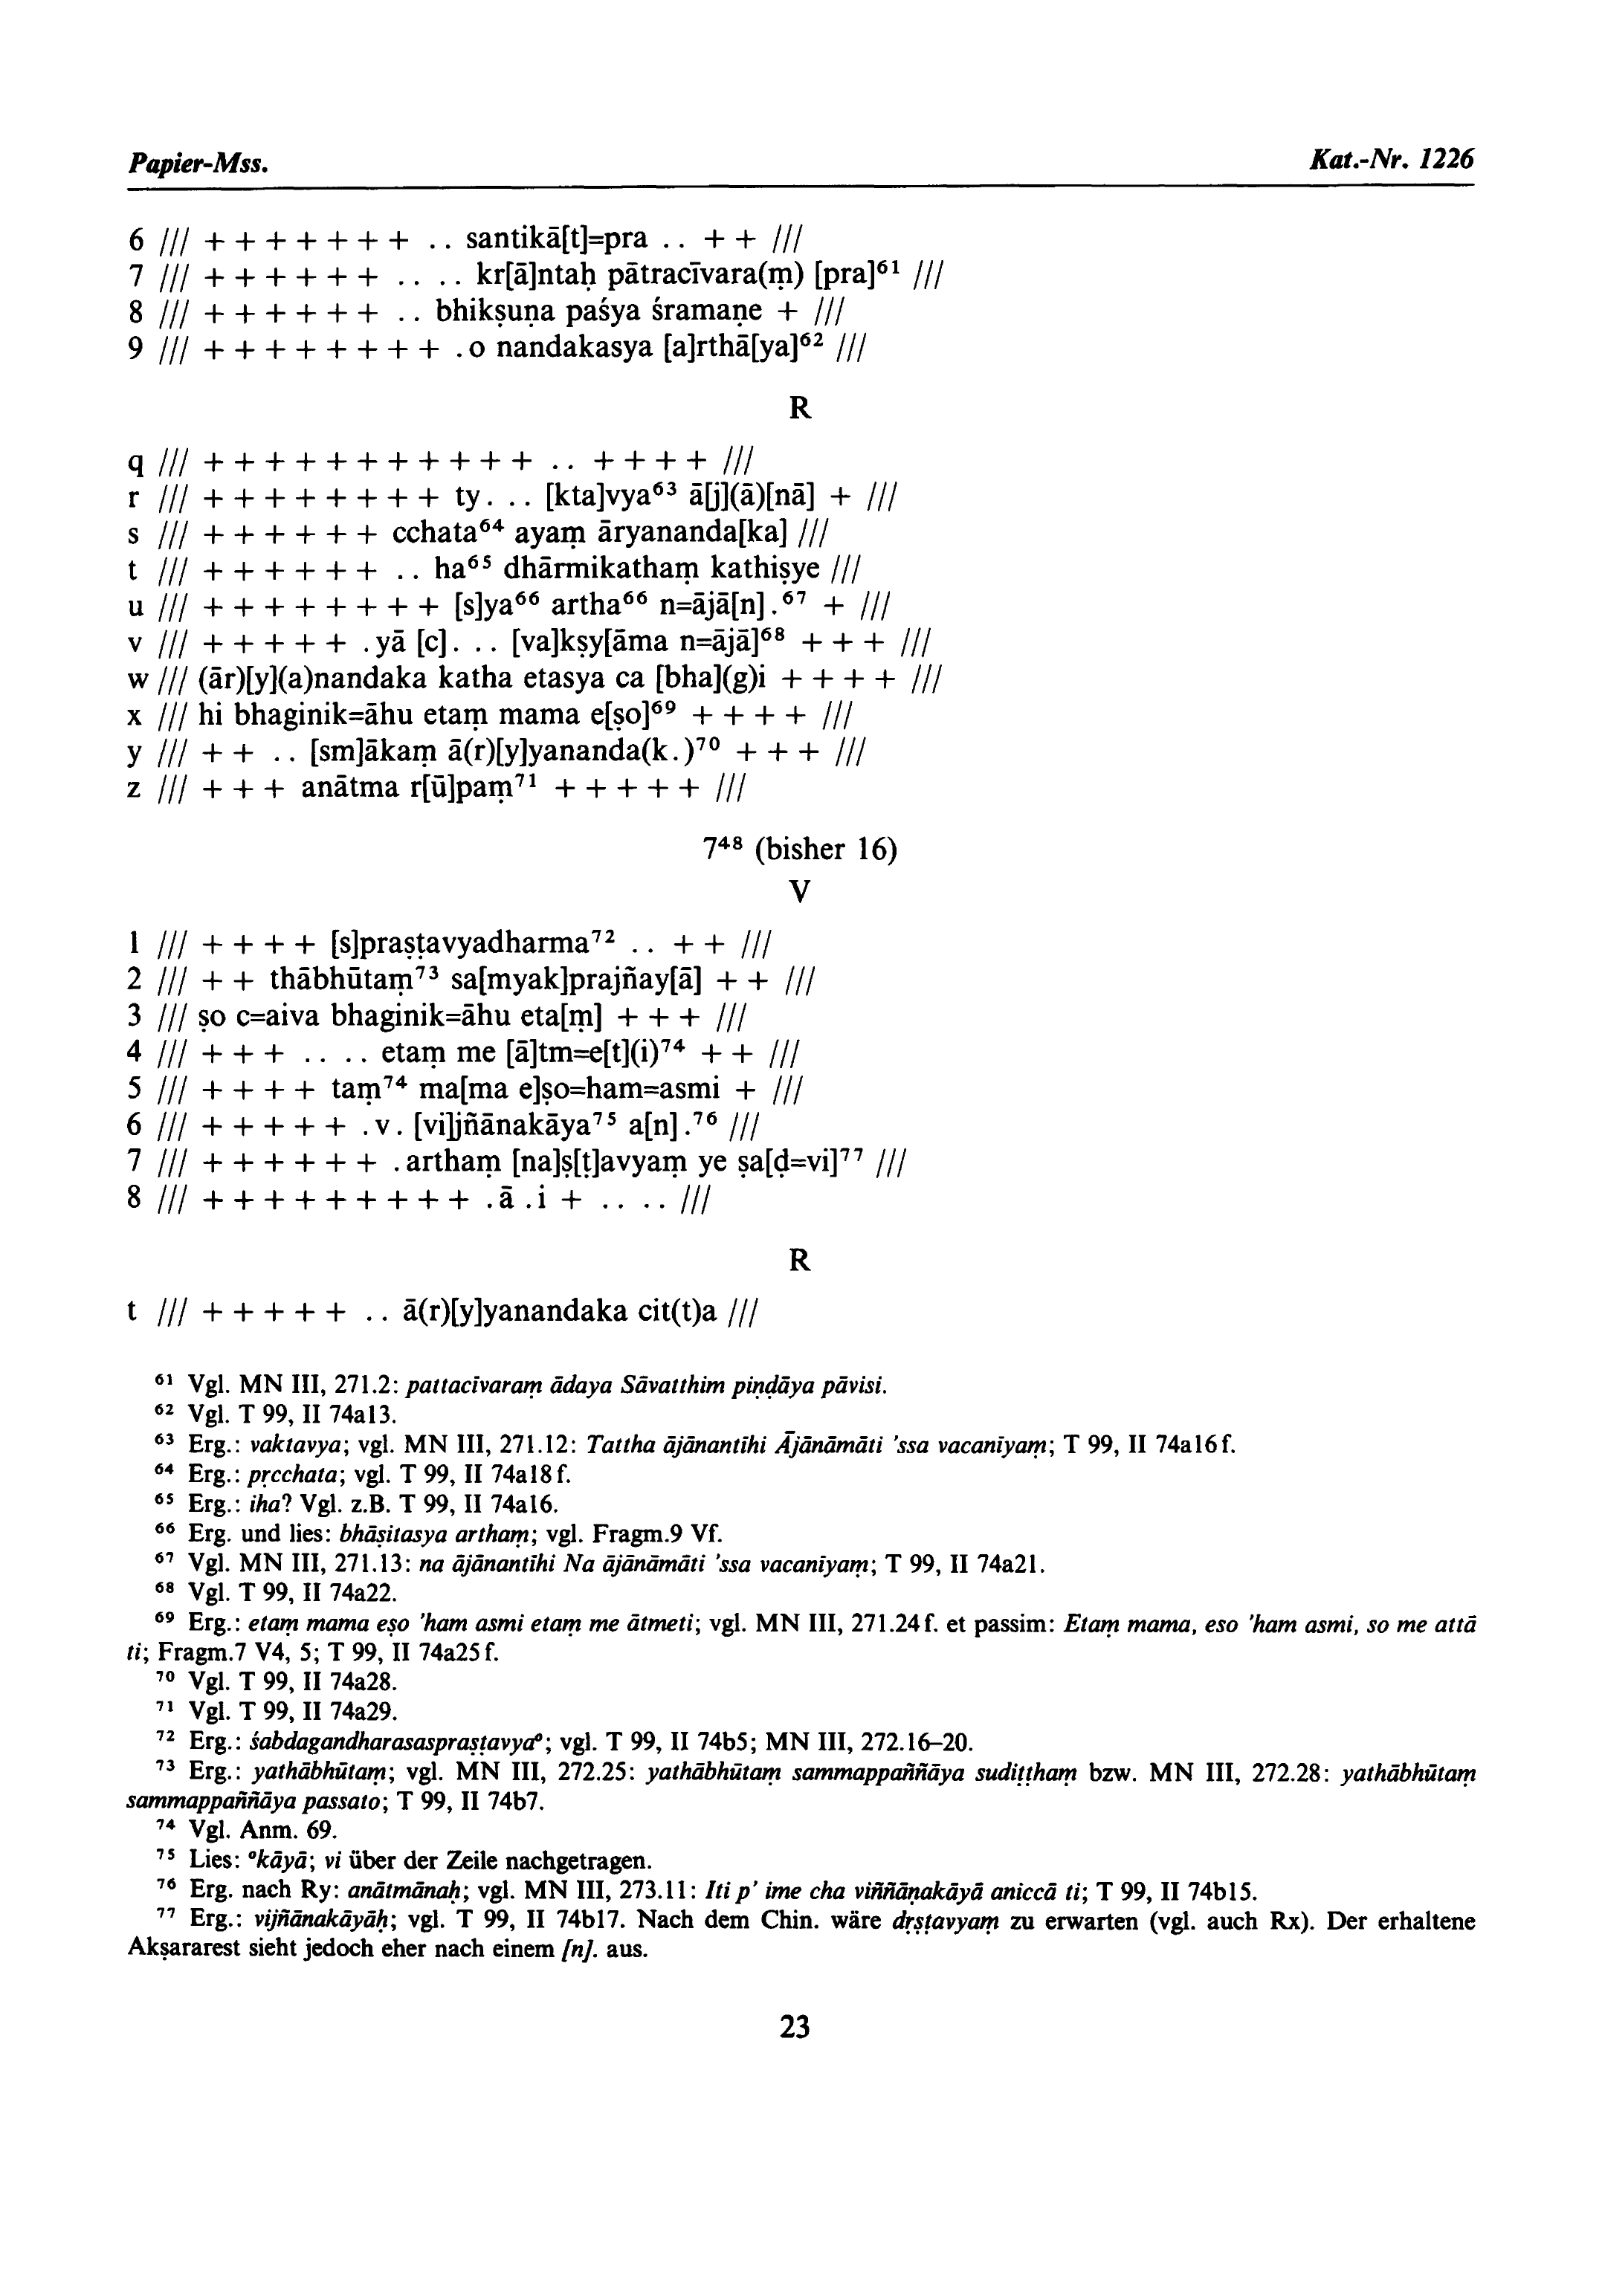 Papier-Mss. Kat.-Nr. 1226
6 /// + + + + + + + .. santikā[t]=pra .. + + ///
7 /// + + + + + + .. .. kr[ā]ntaḥ pātracīvara(ṃ) [pra]⁶¹ ///
8 /// + + + + + + .. bhikṣuṇa paśya śramaṇe + ///
9 /// + + + + + + + + .o nandakasya [a]rthā[ya]⁶² ///
R
q /// + + + + + + + + + + + .. + + + + ///
r /// + + + + + + + + ty. .. [kta]vya⁶³ ā[j](ā)[nā] + ///
s /// + + + + + + cchata⁶⁴ ayaṃ āryananda[ka] ///
t /// + + + + + + .. ha⁶⁵ dhārmikathaṃ kathiṣye ///
u /// + + + + + + + + [s]ya⁶⁶ artha⁶⁶ n=ājā[n].⁶⁷ + ///
v /// + + + + + .yā [c]. .. [va]kṣy[āma n=ājā]⁶⁸ + + + ///
w /// (ār)[y](a)nandaka katha etasya ca [bha](g)i + + + + ///
x /// hi bhaginik=āhu etaṃ mama e[ṣo]⁶⁹ + + + + ///
y /// + + .. [sm]ākaṃ ā(r)[y]yananda(k.)⁷⁰ + + + ///
z /// + + + anātma r[ū]paṃ⁷¹ + + + + + ///
7⁴⁸ (bisher 16)
V
1 /// + + + + [s]praṣṭavyadharma⁷² .. + + ///
2 /// + + thābhūtaṃ⁷³ sa[myak]prajñay[ā] + + ///
3 /// ṣo c=aiva bhaginik=āhu eta[ṃ] + + + ///
4 /// + + + .. .. etaṃ me [ā]tm=e[t](i)⁷⁴ + + ///
5 /// + + + + taṃ⁷⁴ ma[ma e]ṣo=ham=asmi + ///
6 /// + + + + + .v. [vi]jñānakāya⁷⁵ a[n].⁷⁶ ///
7 /// + + + + + + .arthaṃ [na]ṣ[ṭ]avyaṃ ye ṣa[ḍ=vi]⁷⁷ ///
8 /// + + + + + + + + + .ā .i + .. .. ///
R
t /// + + + + + .. ā(r)[y]yanandaka cit(t)a ///
⁶¹ Vgl. MN III, 271.2: pattacivaraṃ ādaya Sāvatthim piṇḍāya pāvisi.
⁶² Vgl. T 99, II 74a13.
⁶³ Erg.: vaktavya; vgl. MN III, 271.12: Tattha ājānantīhi Ājānāmāti 'ssa vacaniyaṃ; T 99, II 74a16f.
⁶⁴ Erg.: pṛcchata; vgl. T 99, II 74a18f.
⁶⁵ Erg.: iha? Vgl. z.B. T 99, II 74a16.
⁶⁶ Erg. und lies: bhāṣitasya arthaṃ; vgl. Fragm.9 Vf.
⁶⁷ Vgl. MN III, 271.13: na ājānantīhi Na ājānāmāti 'ssa vacaniyaṃ; T 99, II 74a21.
⁶⁸ Vgl. T 99, II 74a22.
⁶⁹ Erg.: etaṃ mama eṣo 'ham asmi etaṃ me ātmeti; vgl. MN III, 271.24f. et passim: Etaṃ mama, eso 'ham asmi, so me attā
ti; Fragm.7 V4, 5; T 99, II 74a25f.
⁷⁰ Vgl. T 99, II 74a28.
⁷¹ Vgl. T 99, II 74a29.
⁷² Erg.: śabdagandharasaspraṣṭavya°; vgl. T 99, II 74b5; MN III, 272.16–20.
⁷³ Erg.: yathābhūtaṃ; vgl. MN III, 272.25: yathābhūtaṃ sammappaññāya sudiṭṭhaṃ bzw. MN III, 272.28: yathābhūtaṃ
sammappaññāya passato; T 99, II 74b7.
⁷⁴ Vgl. Anm. 69.
⁷⁵ Lies: °kāyā; vi über der Zeile nachgetragen.
⁷⁶ Erg. nach Ry: anātmānaḥ; vgl. MN III, 273.11: Iti p' ime cha viññāṇakāyā aniccā ti; T 99, II 74b15.
⁷⁷ Erg.: vijñānakāyāḥ; vgl. T 99, II 74b17. Nach dem Chin. wäre dṛṣṭavyaṃ zu erwarten (vgl. auch Rx). Der erhaltene
Akṣararest sieht jedoch eher nach einem [n]. aus.
23